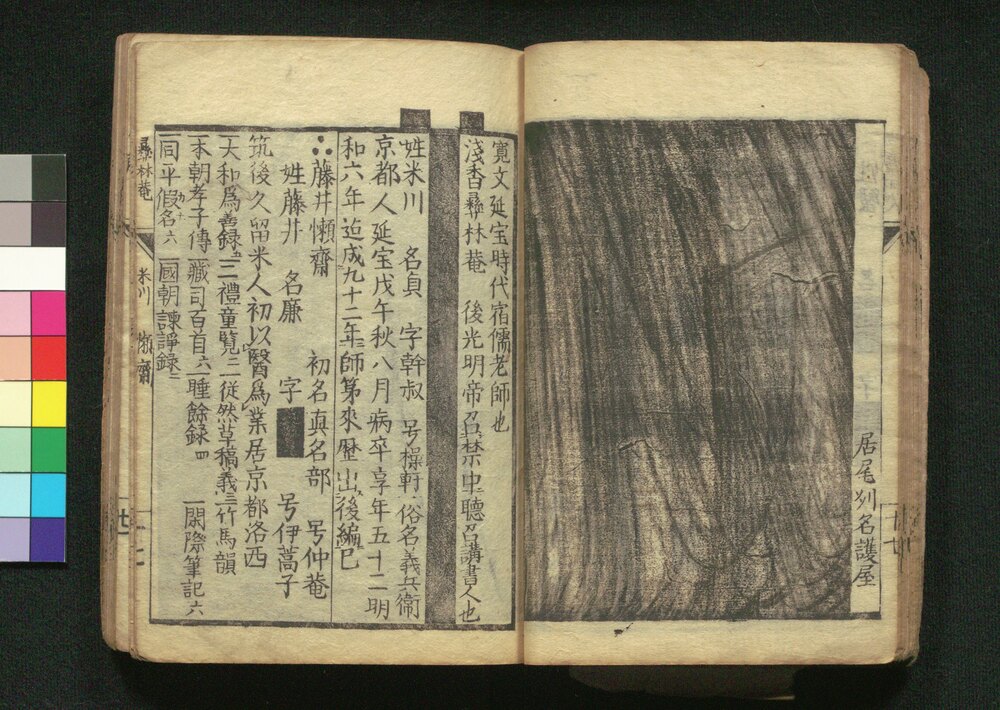 居尾刕名護屋
寛文延宝時代宿儒老師也
淺香彛林菴 後光明帝召禁中聴召講書人也
姓米川 名貞 字幹叔 号操軒 俗名義兵衛
京都人延宝戊午秋八月病卒享年五十二明
和六年迄成九十二年師第來歴出後編已
藤井懶齋 初名真名部 号仲菴
姓藤井 名廉 字 号伊蒿子
筑後久留米人初以醫爲業居京都洛西
一大和爲善録 一二禮童覽二 一徒然草摘義三 一竹馬韻
一本朝孝子傳 一藏司百首六 一睡餘録四 一閑際筆記六
一同平假名六 一國朝諫諍録二
彛林菴 米川 懶齋